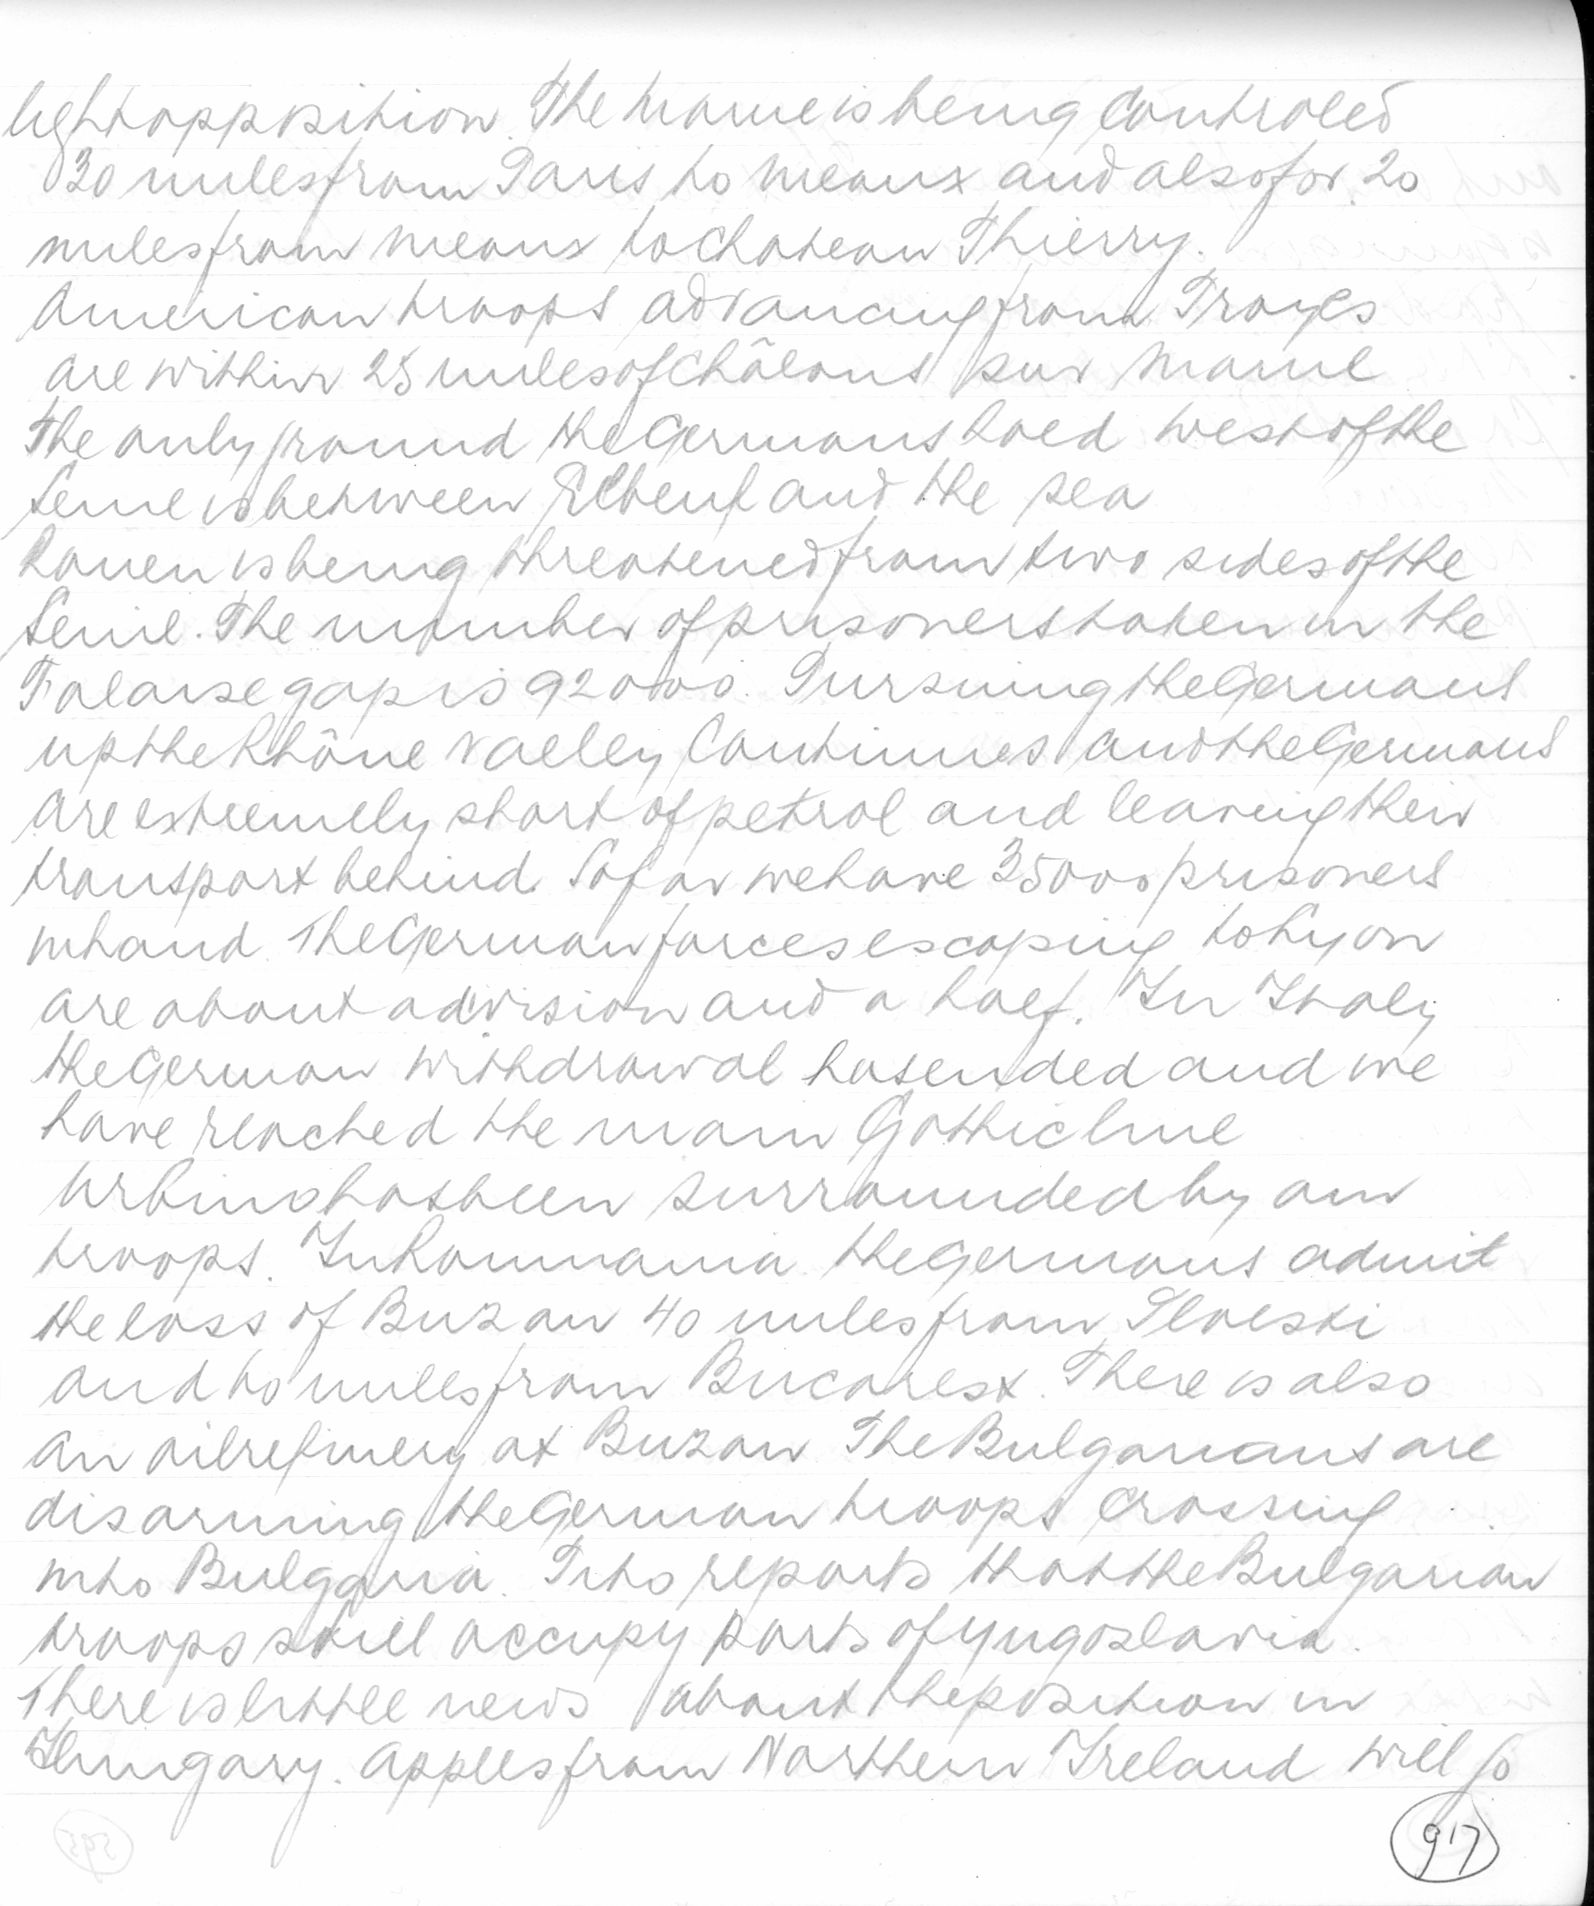 light opposition. The Marne is being controled
30 miles from Paris to Meaux and also for 20
miles from Meaux to Chateau Thierry.
American troops advancing from Troyes
are within 25 miles of Châlons sur Marne
The only ground the Germans hold west of the
Seine is between Elbeuf and the sea
Rouen is being threatened from two sides of the
Seine. The number of prisoners taken in the
Falaise gap is 92000. Pursuing the Germans
up the Rhône valley continues and the Germans
are extremely short of petrol and leaving their
transport behind. So far we have 35000 prisoners
in hand. The German forces escaping to Lyon
are about a division and a half. In Italy
the German withdrawal has ended and we
have reached the main Gothic line
Urbino has been surrounded by our
troops. In Roumania the Germans admit
the loss of Buzau 40 miles from Ploesti
and 60 miles from Bucarest. There is also
an oil refinery at Buzau. The Bulgarians are
disarming the German troops crossing
into Bulgaria. Tito reports that the Bulgarian
troops still occupy parts of Yugoslavia.
There is little news about the position in
Hungary. Apples from Northern Ireland will go
917
595